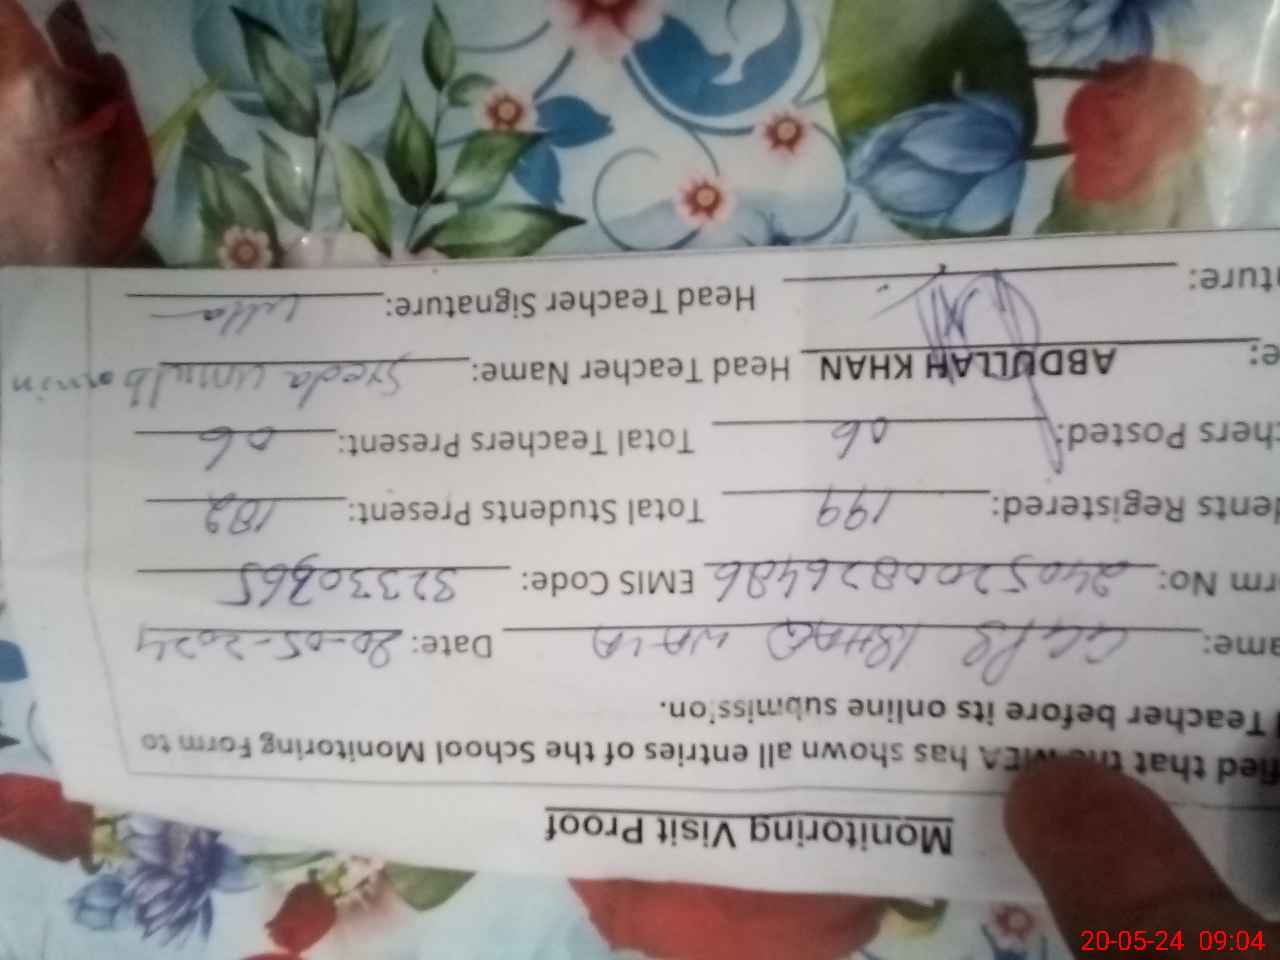 Monitoring Visit Proof
fied that the MEA has shown all entries of the School Monitoring Form to
Teacher before its online submission.
ame: GGPS ISHAQ WALA Date: 20-05-2024
rm No: 2405200826486 EMIS Code: 32330365
dents Registered: 199 Total Students Present: 182
chers Posted: 06 Total Teachers Present: 06
e: ABDULLAH KHAN Head Teacher Name: Syeda
ture: Head Teacher Signature:
20-05-24 09:04